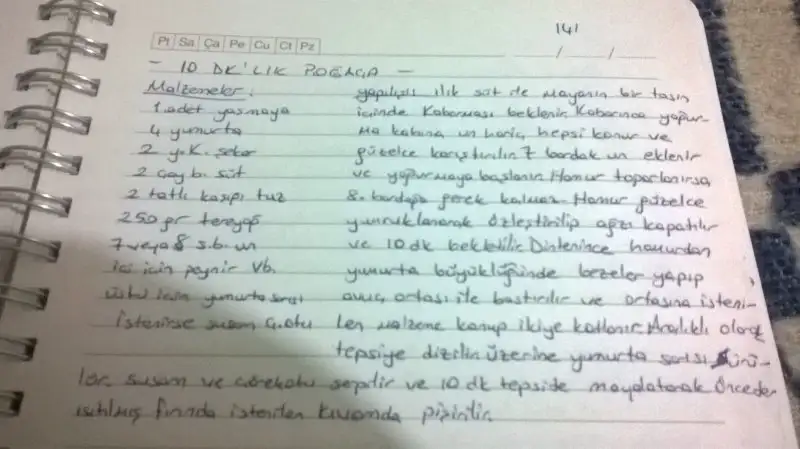 141
Pt Sa Ça Pe Cu Ct Pz
/ /
- 10 DK'LIK POĞAÇA -
Malzemeler:
1 adet yaşmaya
4 yumurta
2 y.K. şeker
2 çay b. süt
2 tatlı kaşığı tuz
250 gr tereyağ
7 veya 8 s.b. un
içi için peynir vb.
üstü için yumurta sarısı
istenirse susam ç.otu
yapılışı ılık süt ile mayanın bir tasın
içinde Kabarması beklenir. Kabarınca yoğur-
ma kabına un hariç hepsi konur ve
güzelce karıştırılır. 7 bardak un eklenir
ve yoğurmaya başlanır. Hamur toparlanırsa
8. bardağa gerek kalmaz. Hamur güzelce
yumruklanarak özleştirilip ağzı kapatılır
ve 10 dk bekletilir. Dinlenince hamurdan
yumurta büyüklüğünde bezeler yapıp
avuç ortası ile bastırılır ve ortasına isteni-
len malzeme konup ikiye katlanır. Aralıklı olarak
tepsiye dizilir. Üzerine yumurta sarısı sürü-
lür. susam ve çörekotu sepilir ve 10 dk tepside mayalatarak önceden
ısıtılmış fırında istenilen kıvamda pişirilir.